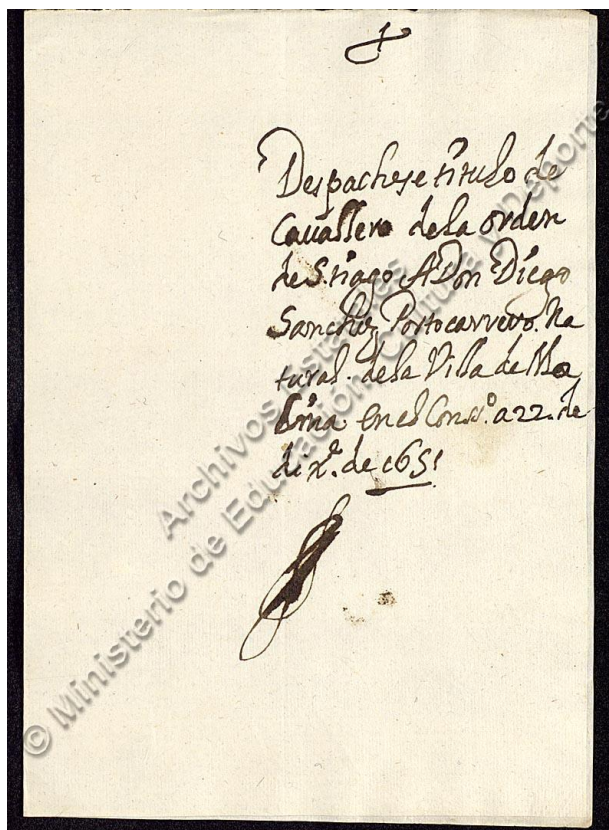 Despachese titulo de
Cauallero de la orden
de S.tiago A Don Diego
Sanchez Portocarrero. Na
tural. de la Villa de Mo
lina en el Cons.º a 22. de
dix.e de 1651
© Ministerio de Educación, Cultura y Deporte
Archivos Estatales